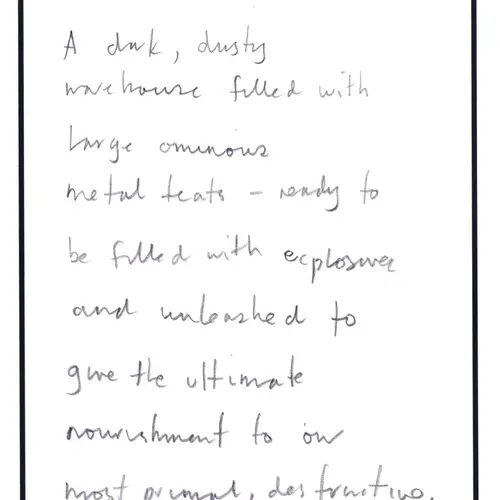 A dark, dusty
warehouse filled with
large ominous
metal teats – ready to
be filled with explosives
and unleashed to
give the ultimate
nourishment to our
most primal, destructive.